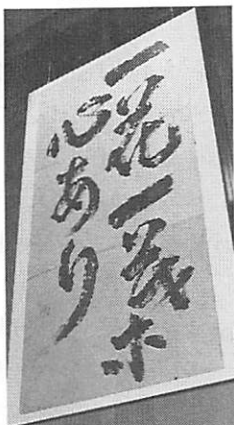 一花一葉
心あり